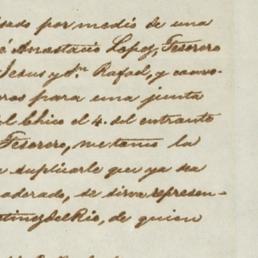 por medio de una
Anastacio Lopez, Tesorero
Jesus y Sn. Rafael, y convo-
para una junta
el Chico el 4. del entrante
Tesorero, metomo la
suplicarle que ya sea
se sirva represen-
del Rio, de quien